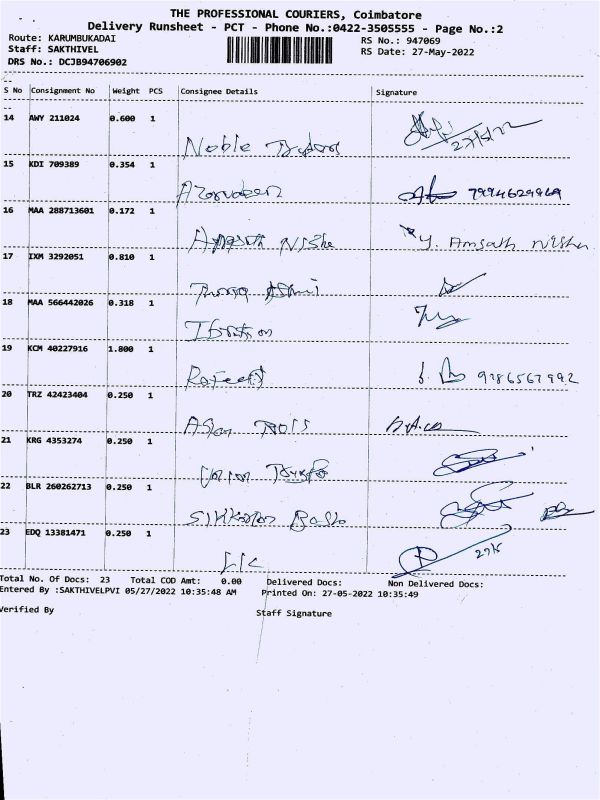 THE PROFESSIONAL COURIERS, Coimbatore
Delivery Runsheet - PCT - Phone No.:0422-3505555 - Page No.:2
Route: KARUMBUKADAI
RS No.: 947069
Staff: SAKTHIVEL
RS Date: 27-May-2022
DRS No.: DCJB94706902
S No Consignment No Weight PCS Consignee Details Signature
14 AWY 211024 0.600 1
Noble 27/5/22
15 KDI 709389 0.354 1
7994629969
16 MAA 288713601 0.172 1
Nisha y. Amsath Nisha
17 IXM 3292051 0.810 1
18 MAA 566442026 0.318 1
19 KCM 40227916 1.800 1
9786567992
20 TRZ 42423404 0.250 1
21 KRG 4353274 0.250 1
22 BLR 260262713 0.250 1
23 EDQ 13381471 0.250 1
LIC 27/5
Total No. Of Docs: 23 Total COD Amt: 0.00 Delivered Docs: Non Delivered Docs:
Entered By :SAKTHIVELPVI 05/27/2022 10:35:48 AM Printed On: 27-05-2022 10:35:49
Verified By Staff Signature